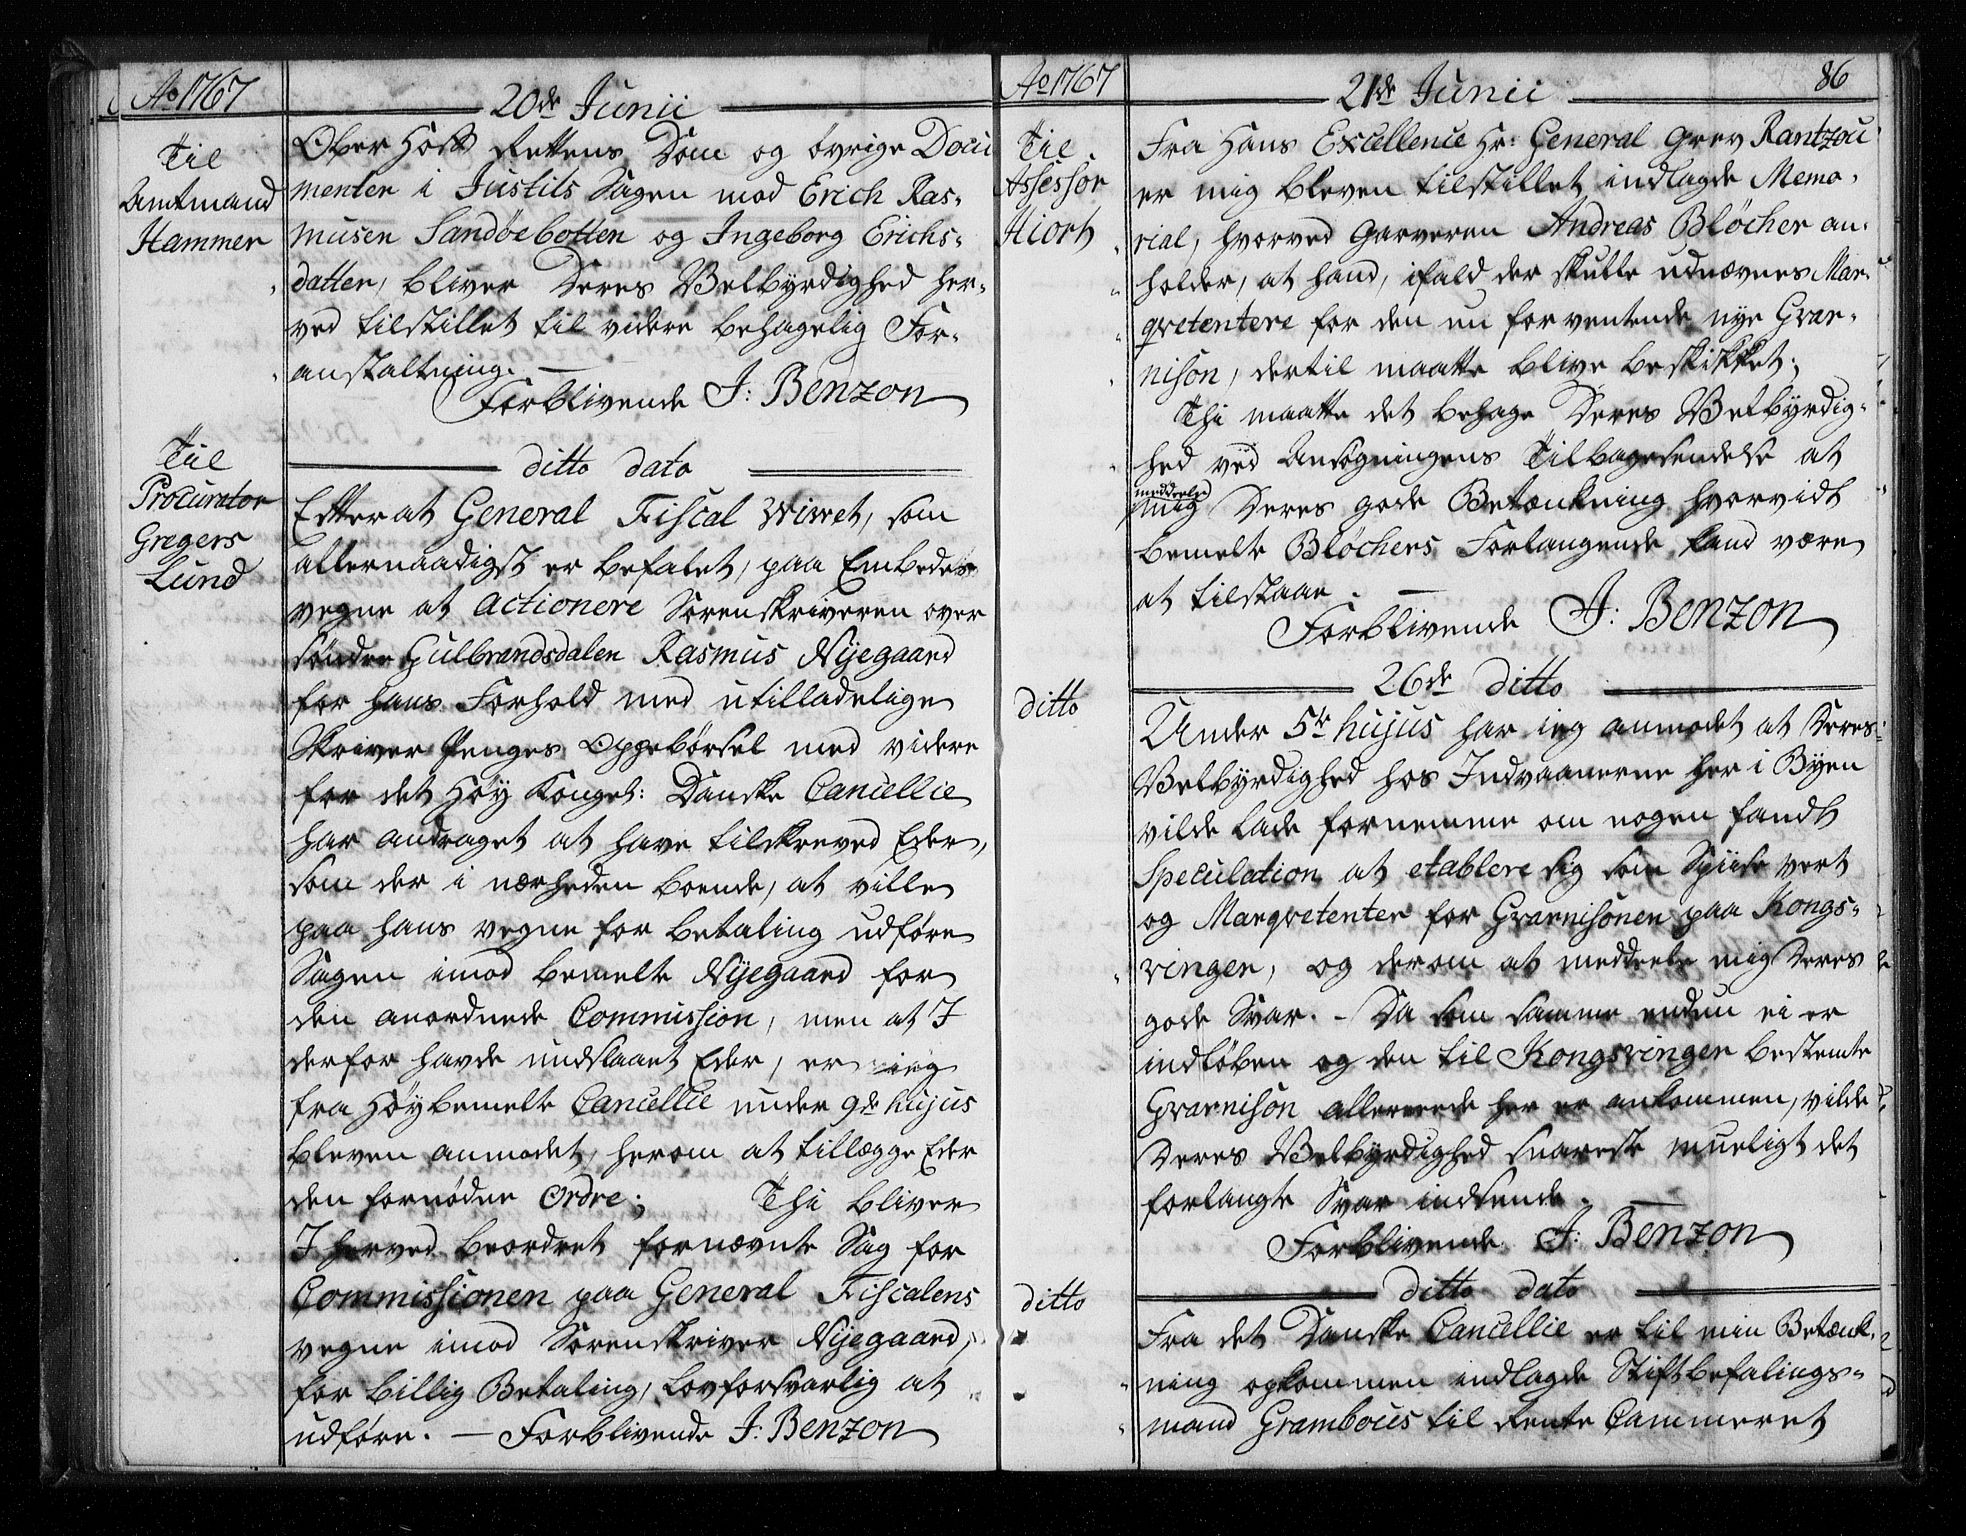 Ao 1767
20de Junii
Til
Amtmand
Hammer
Ober Hoff Rettens Dom og øvrige Docu
menter i Justits Sagen mod Erich Ras-
musen Sandöebotten og Ingeborg Erichs-
datter, bliver Deres Velbyrdighed her-
ved tilstillet til videre behagelig For-
anstaltning. —
Forblivende J: Benzon
Til
Procurator
Gregers
Lund
ditto dato
Efter at General Fiscal Wivet, som
allernaadigst er befalet, paa Embeds
vegne at actionere Sorenskriveren over
Sönder Gulbrandsdalen Rasmus Nyegaard
for hans Forhold med utilladelige
Skriver Penges Oppebörsel med videre
for det Höy Konget: Danske Cancellie
har andraget at have tilskreved Eder,
som der i nærheden boende, at ville
paa hans vegne for betaling udföre
Sagen imod bemelte Nyegaard for
den anordnede Commission, men at I
derfor havde undslaaet Eder, er ieg
fra Höybemelte Cancellie under 9de hujus
bleven anmodet, herom at tillægge Eder
den fornödne Ordre; Thi bliver
I herved beordret fornævnte Sag for
Commissionen paa General Fiscalens
vegne imod Sorenskriver Nyegaard,
for billig Betaling, lovforsvarlig at
udföre. — Forblivende J: Benzon
Ao 1767
21de Junii
86
Til
Assessor
Hiorth
Fra Hans Excellence Hr: General Grev Rantzou
er mig bleven tilstillet indlagde Memo-
rial, hvorved Garveren Andreas Blöcher an-
holder, at hand, ifald der skulle udnævnes Mar-
qvetentere for den nu forventende nye Guar-
nison, dertil maatte blive beskikket;
Thi maatte det behage Deres Velbyrdig-
hed ved Ansögningens Tilbagesendelse at
meddeele
mig Deres gode Betænkning hvorvidt
bemelte Blöchers Forlangende kand være
at tilstaae. —
Forblivende J: Benzon
26de ditto
ditto
Under 5te hujus har ieg anmodet at Deres
Velbyrdighed hos Indvaanerne her i Byen
vilde lade fornemme om nogen fandt
Speculation at etablere sig som Spiise vert
og Marqvetenter for Guarnisonen paa Kongs-
vinger, og derom at meddeele mig Deres
gode Svar. - Da som samme endnu ei er
indlöben og den til Kongsvinger bestemte
Guarnison allereede her er ankommen, vilde
Deres Velbyrdighed snareste mueligt det
forlangte Svar indsende. —
Forblivende J: Benzon
ditto dato
ditto
Fra det Danske Cancellie er til min Betænk-
ning opkommen indlagde Stiftbefalings-
mand Grambous til Rente Cammeret